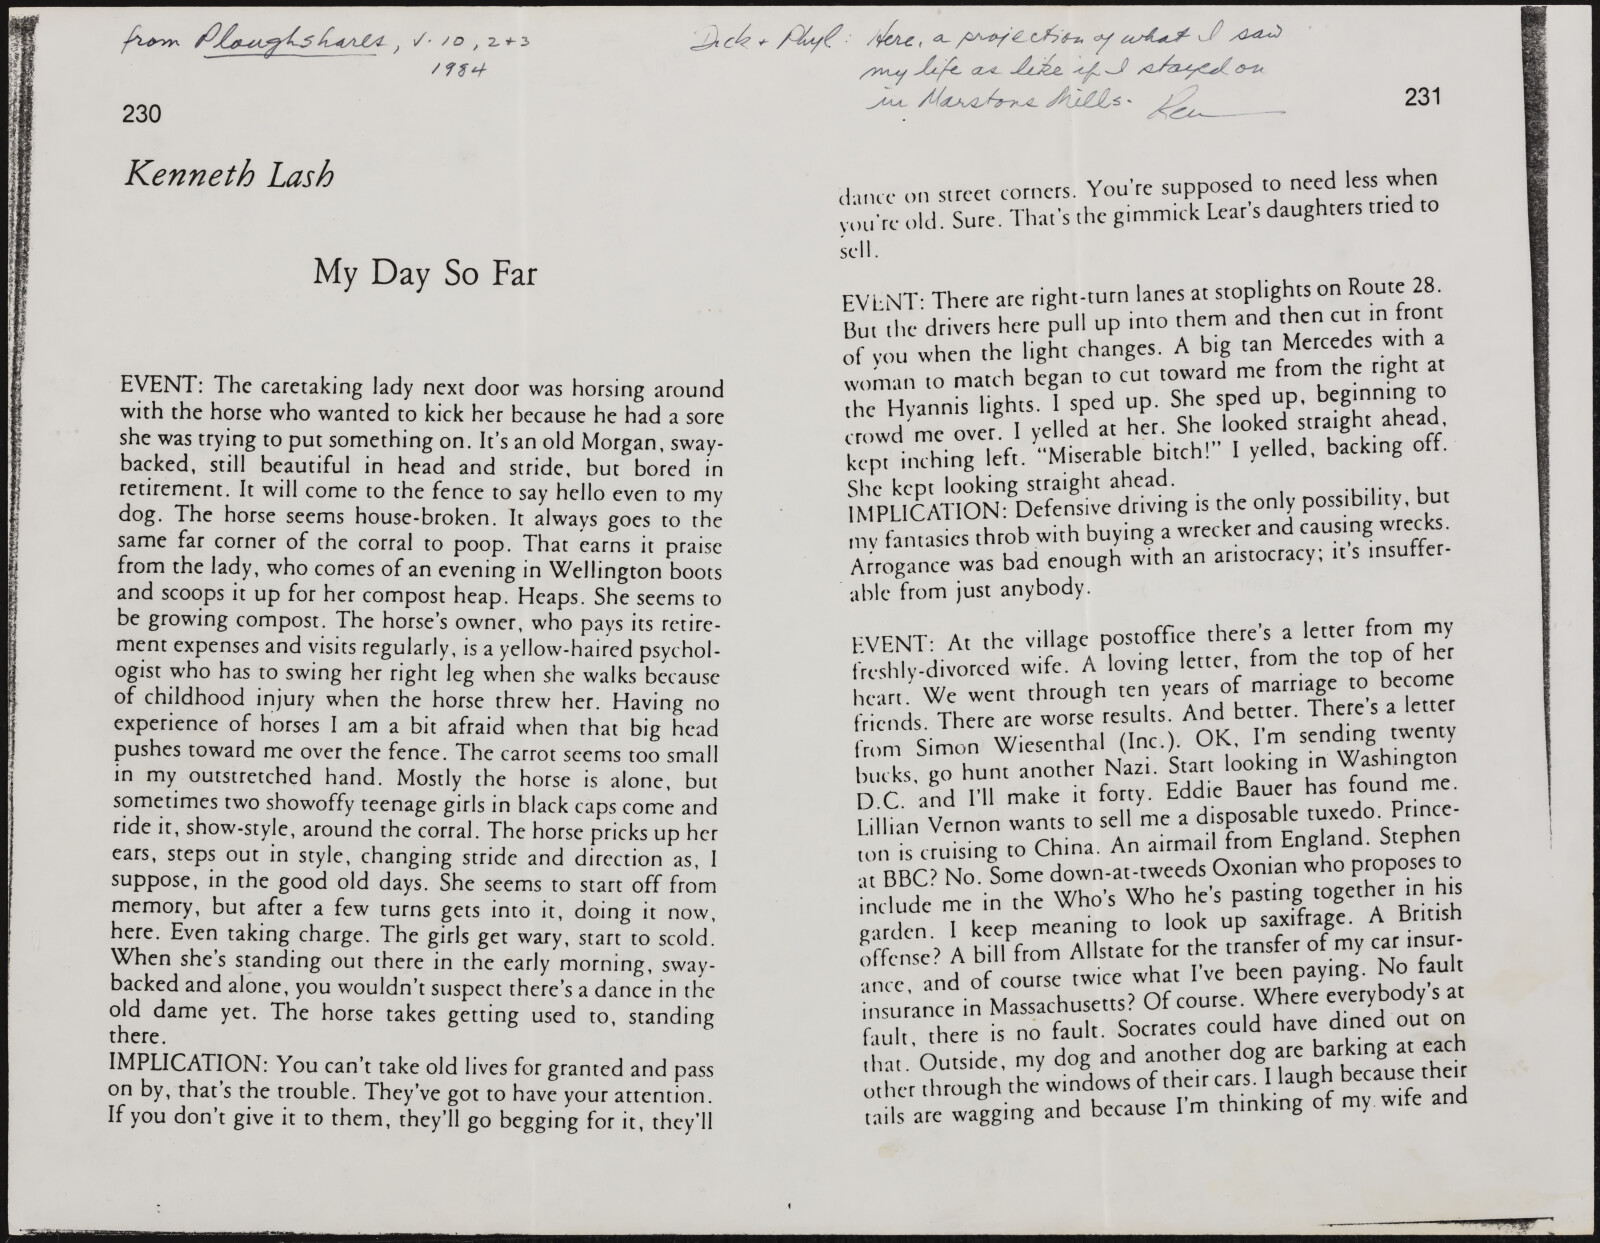 from Ploughshares, v. 10, 2+3
1984
230
Kenneth Lash
My Day So Far
EVENT: The caretaking lady next door was horsing around
with the horse who wanted to kick her because he had a sore
she was trying to put something on. It's an old Morgan, sway-
backed, still beautiful in head and stride, but bored in
retirement. It will come to the fence to say hello even to my
dog. The horse seems house-broken. It always goes to the
same far corner of the corral to poop. That earns it praise
from the lady, who comes of an evening in Wellington boots
and scoops it up for her compost heap. Heaps. She seems to
be growing compost. The horse's owner, who pays its retire-
ment expenses and visits regularly, is a yellow-haired psychol-
ogist who has to swing her right leg when she walks because
of childhood injury when the horse threw her. Having no
experience of horses I am a bit afraid when that big head
pushes toward me over the fence. The carrot seems too small
in my outstretched hand. Mostly the horse is alone, but
sometimes two showoffy teenage girls in black caps come and
ride it, show-style, around the corral. The horse pricks up her
ears, steps out in style, changing stride and direction as, I
suppose, in the good old days. She seems to start off from
memory, but after a few turns gets into it, doing it now,
here. Even taking charge. The girls get wary, start to scold.
When she's standing out there in the early morning, sway-
backed and alone, you wouldn't suspect there's a dance in the
old dame yet. The horse takes getting used to, standing
there.
IMPLICATION: You can't take old lives for granted and pass
on by, that's the trouble. They've got to have your attention.
If you don't give it to them, they'll go begging for it, they'll
Dick + Phyl: Here, a projection of what I saw
my life as like if I stayed on
in Marstons Mills. Ken
231
dance on street corners. You're supposed to need less when
you're old. Sure. That's the gimmick Lear's daughters tried to
sell.
EVENT: There are right-turn lanes at stoplights on Route 28.
But the drivers here pull up into them and then cut in front
of you when the light changes. A big tan Mercedes with a
woman to match began to cut toward me from the right at
the Hyannis lights. I sped up. She sped up, beginning to
crowd me over. I yelled at her. She looked straight ahead,
kept inching left. "Miserable bitch!" I yelled, backing off.
She kept looking straight ahead.
IMPLICATION: Defensive driving is the only possibility, but
my fantasies throb with buying a wrecker and causing wrecks.
Arrogance was bad enough with an aristocracy; it's insuffer-
able from just anybody.
EVENT: At the village postoffice there's a letter from my
freshly-divorced wife. A loving letter, from the top of her
heart. We went through ten years of marriage to become
friends. There are worse results. And better. There's a letter
from Simon Wiesenthal (Inc.). OK, I'm sending twenty
bucks, go hunt another Nazi. Start looking in Washington
D.C. and I'll make it forty. Eddie Bauer has found me.
Lillian Vernon wants to sell me a disposable tuxedo. Prince-
ton is cruising to China. An airmail from England. Stephen
at BBC? No. Some down-at-tweeds Oxonian who proposes to
include me in the Who's Who he's pasting together in his
garden. I keep meaning to look up saxifrage. A British
offense? A bill from Allstate for the transfer of my car insur-
ance, and of course twice what I've been paying. No fault
insurance in Massachusetts? Of course. Where everybody's at
fault, there is no fault. Socrates could have dined out on
that. Outside, my dog and another dog are barking at each
other through the windows of their cars. I laugh because their
tails are wagging and because I'm thinking of my wife and